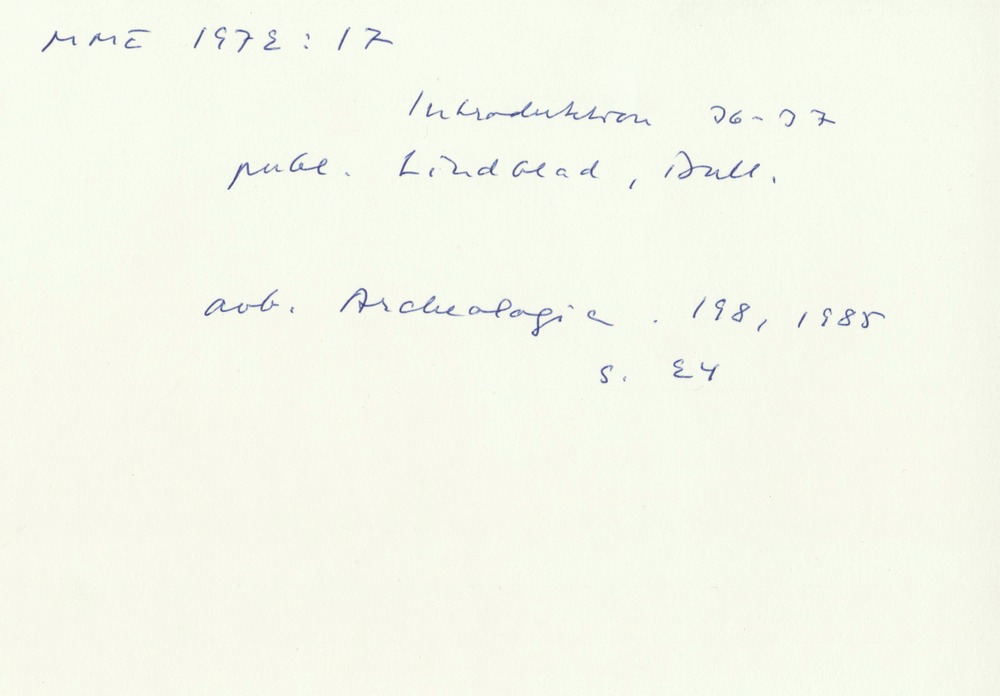 MME 1972:17
Introduktion 36-37
publ. Lindblad, Bull.
avb. Archeologia. 198, 1985
s. 24